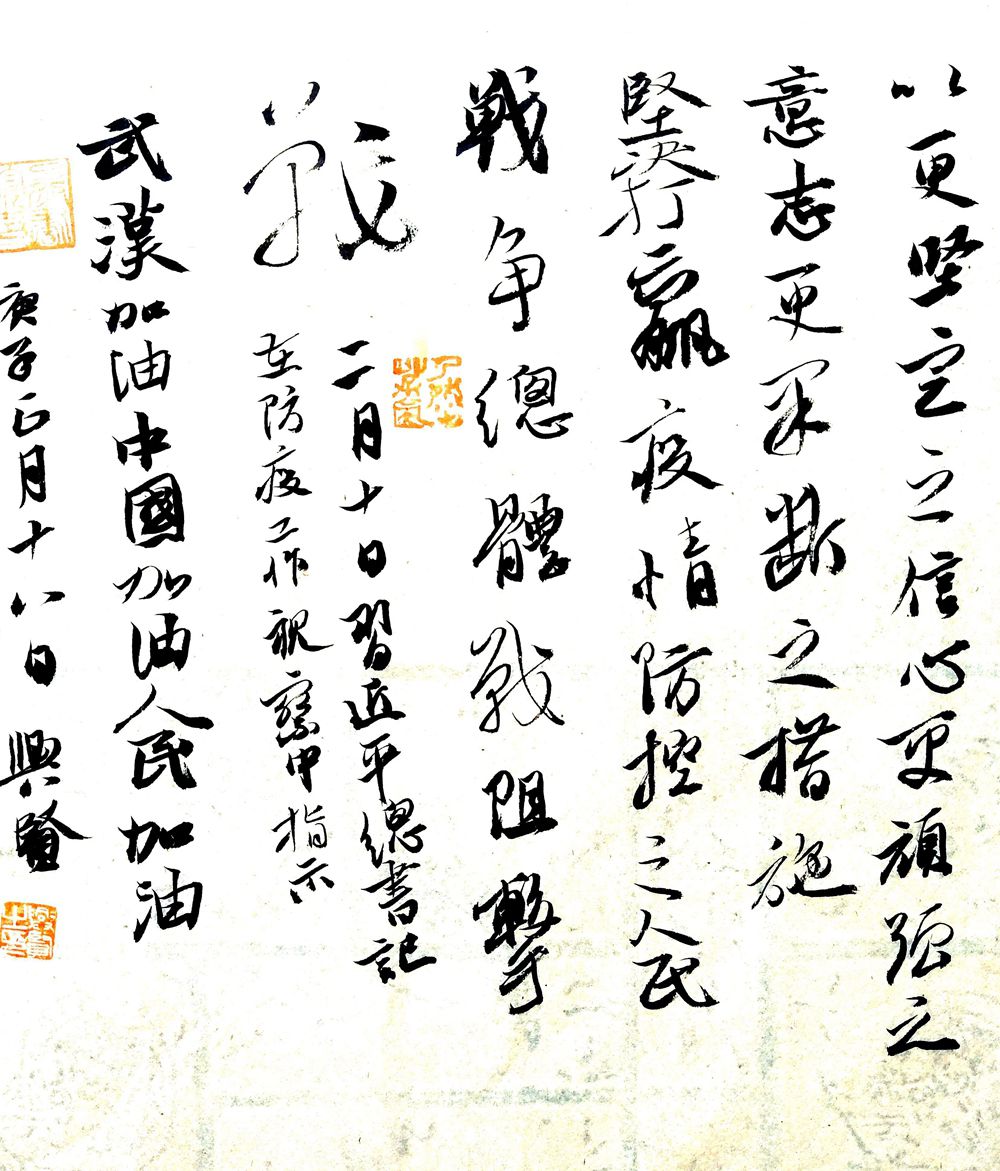 以更堅定之信心更頑强之
意志更果断之措施
堅决打贏疫情防控之人民
戰争總體戰阻擊
戰
二月十日習近平總書記
在防疫工作視察中指示
武漢加油中國加油人民加油
庚子正月十八日興賢